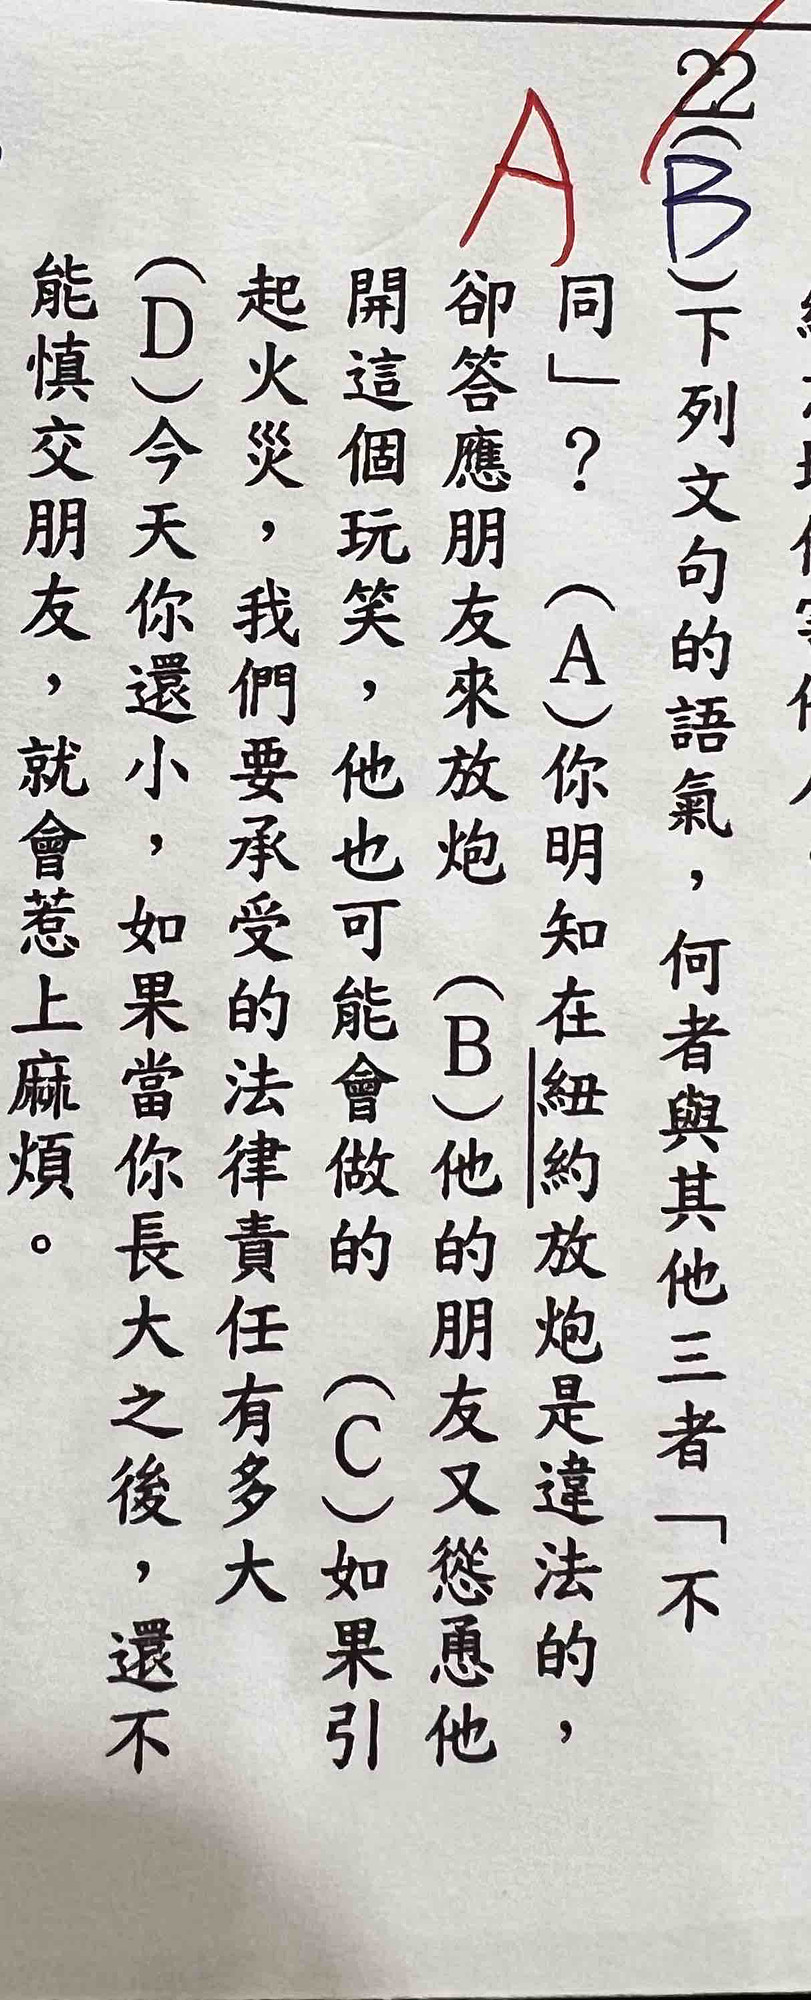 22(B)下列文句的語氣，何者與其他三者「不
同」？ (A)你明知在紐約放炮是違法的，
卻答應朋友來放炮 (B)他的朋友又慫恿他
開這個玩笑，他也可能會做的 (C)如果引
起火災，我們要承受的法律責任有多大
(D)今天你還小，如果當你長大之後，還不
能慎交朋友，就會惹上麻煩。
A